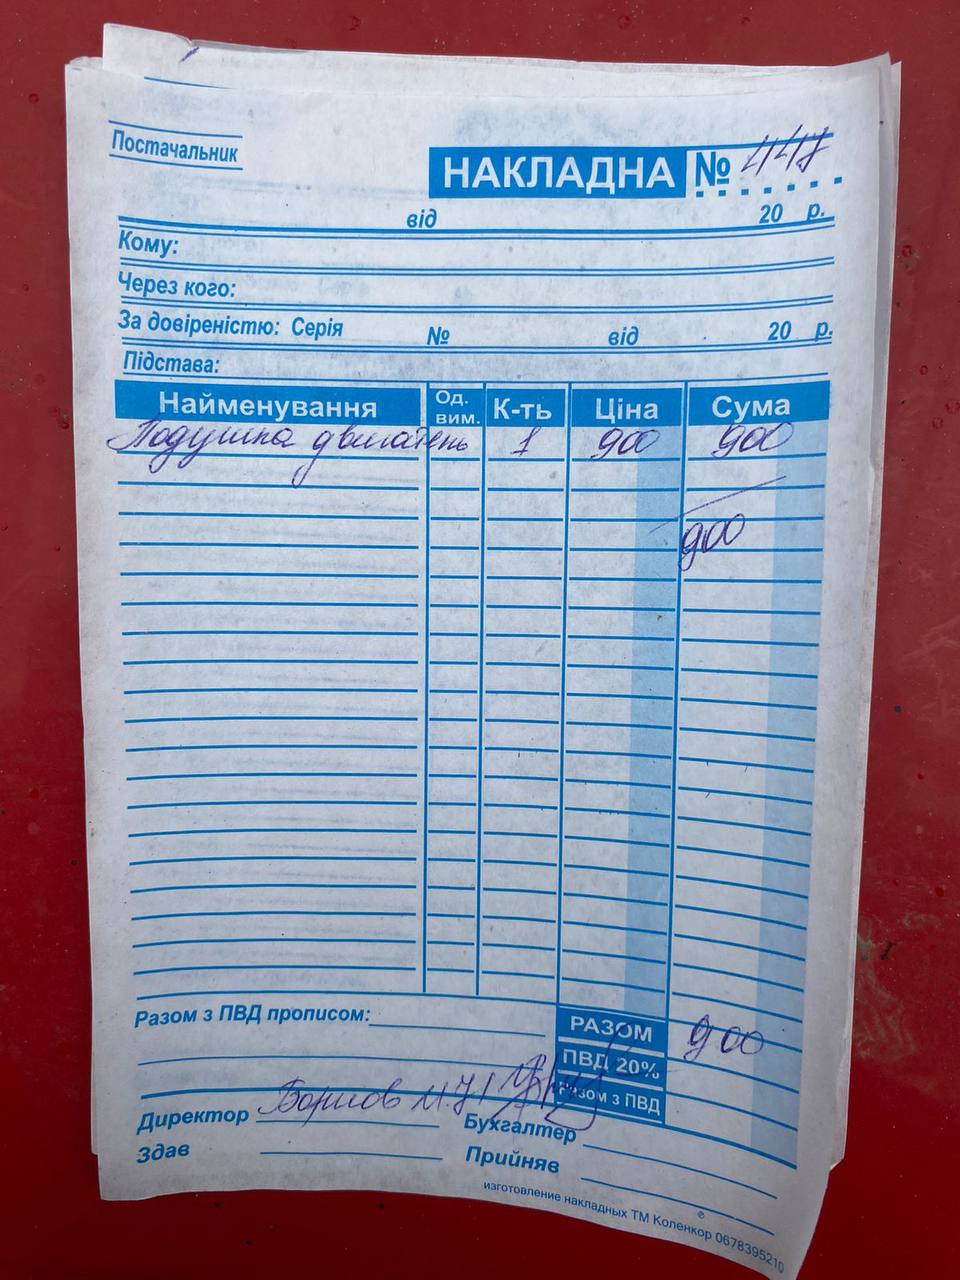 Постачальник
НАКЛАДНА № 447
від 20 р.
Кому:
Через кого:
За довіреністю: Серія № від 20 р.
Підстава:
Найменування Од. вим. К-ть Ціна Сума
Подушка двигатель 1 900 900
900
Разом з ПВД прописом: РАЗОМ 900
ПВД 20%
Разом з ПВД
Директор Борисов Бухгалтер
Здав Прийняв
изготовление накладных ТМ Коленкор 0678395210